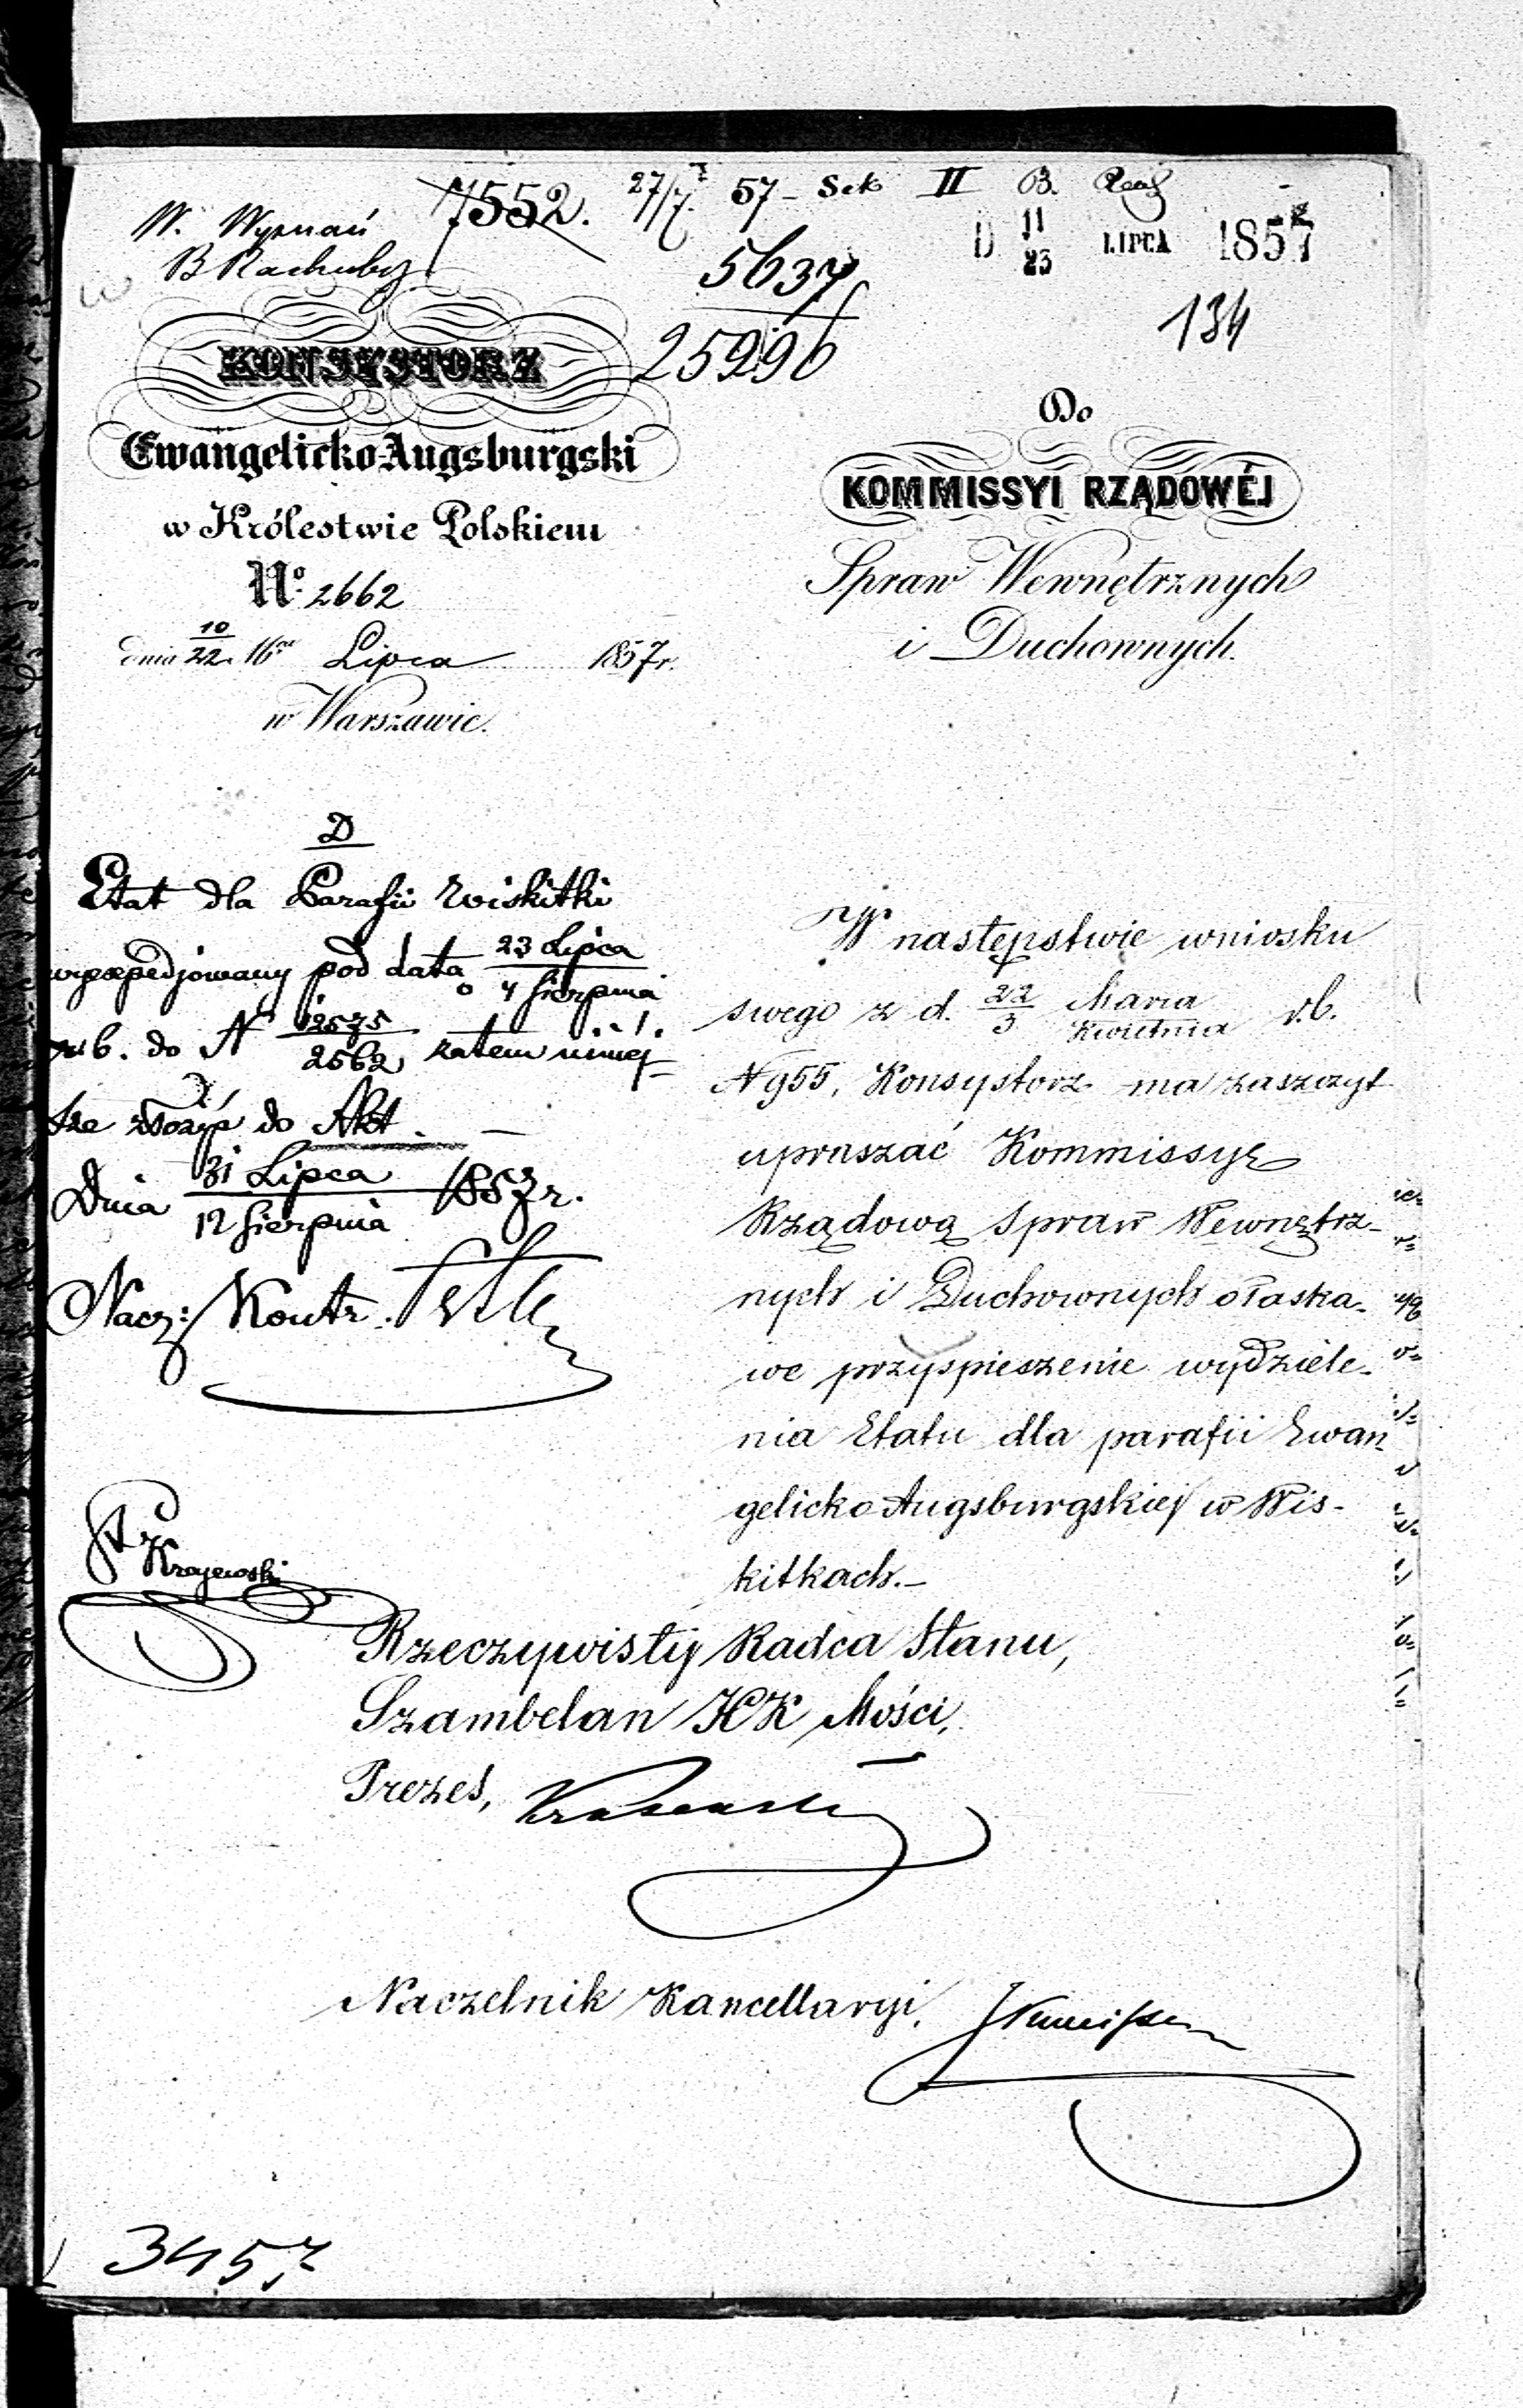 W. Wyznań
B Rachuby
7552.
27/7 57 - Sek II B.
5637
25996
D 11/23 LIPCA 1857
134
KONSYSTORZ
Ewangelicko-Augsburgski
w Królestwie Polskiem
No. 2662
dnia 10/22 Lipca 1857 r.
w Warszawie.
Do
KOMMISSYI RZĄDOWÉJ
Spraw Wewnętrznych
i Duchownych.
D
Etat dla Parafii Wiskitki
wyexpedjowany pod datą 23 Lipca / 4 Sierpnia
r. b. do N 12575/2562 zatem niniej=
sze złożyć do Akt. —
Dnia 31 Lipca / 12 Sierpnia 1857 r.
Nacz: Kontr.
Krajewski
W następstwie wniosku
swego z d. 22 Marca / 3 Kwietnia r.b.
N 955, Konsystorz ma zaszczyt
upraszać Kommissyę
Rządową Spraw Wewnętrz-
nych i Duchownych o łaska-
we przyspieszenie wydziele-
nia Etatu dla parafii Ewan
gelicko Augsburgskiej w Wis-
kitkach.—
Rzeczywisty Radca Stanu,
Szambelan JCK Mości,
Prezes,
Naczelnik Kancellaryi,
3457